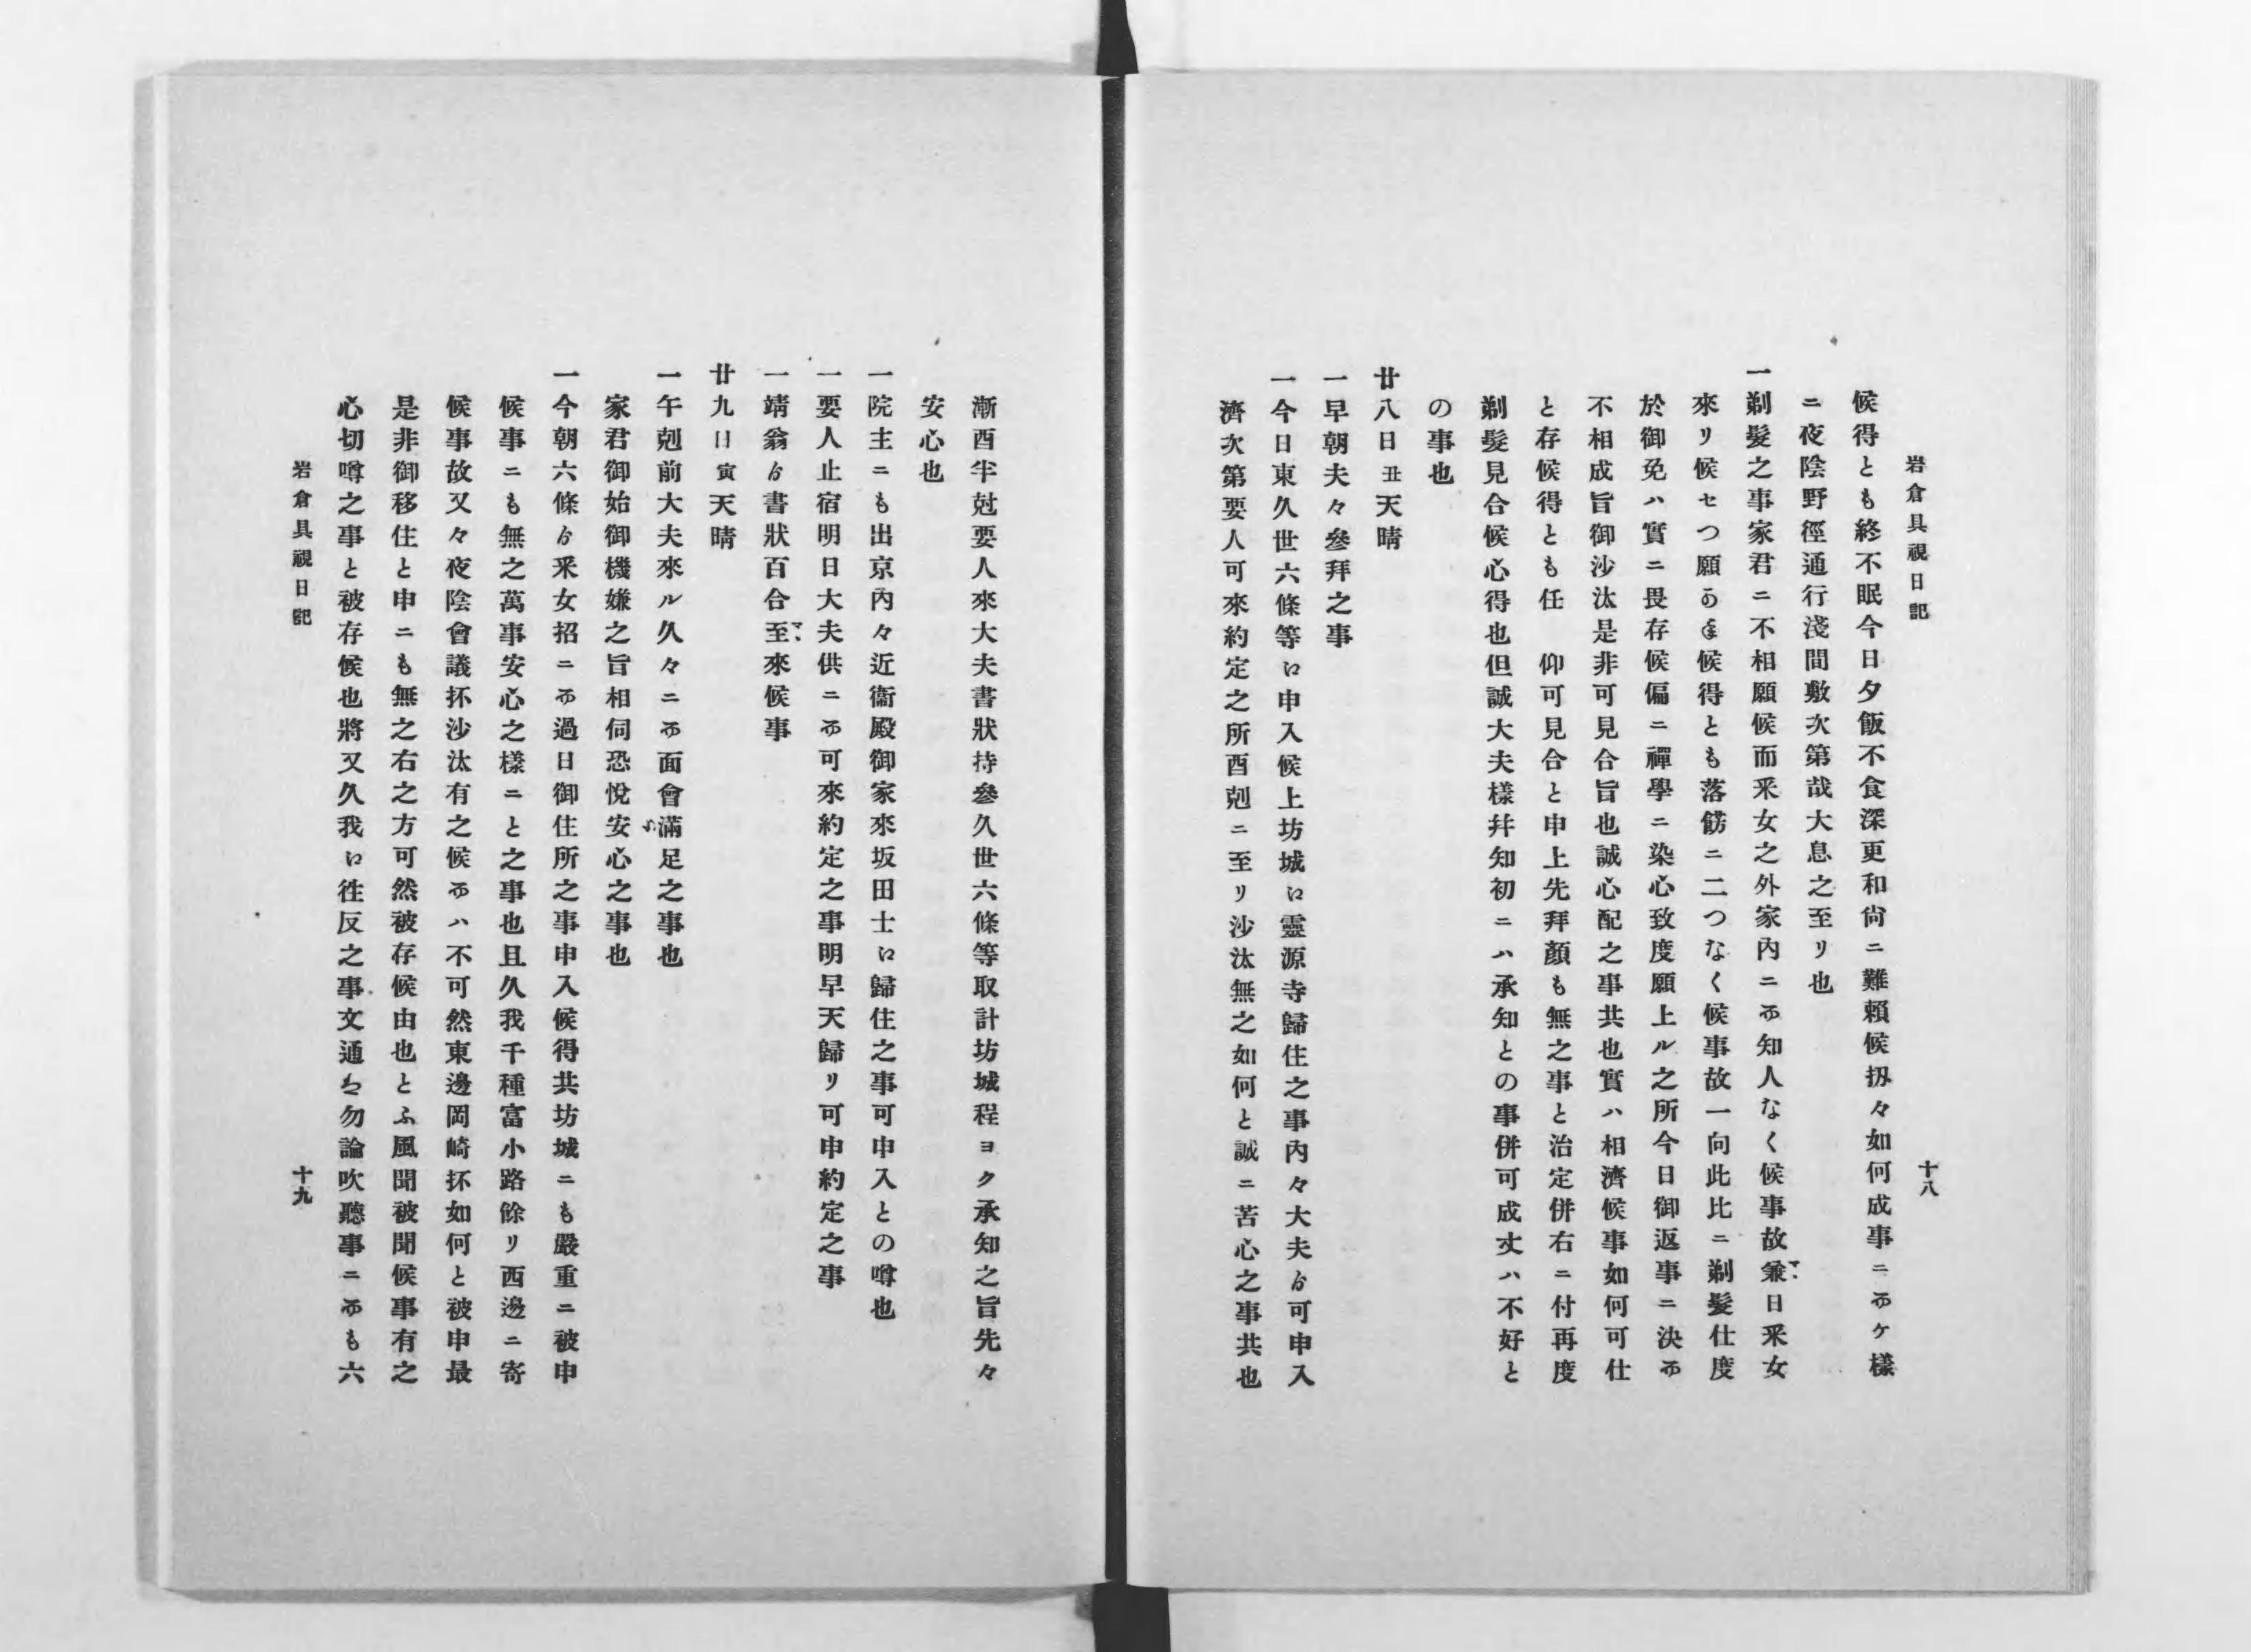 岩倉具視日記
十八
候得とも終不眠今日夕飯不食深更和尙ニ難賴候扨々如何成事ニ而ケ樣
ニ夜陰野徑通行淺間敷次第哉大息之至リ也
一剃髮之事家君ニ不相願候而釆女之外家內ニ而知人なく候事故兼日釆女
來リ候セつ願置候得とも落餝ニ二つなく候事故一向此比ニ剃髮仕度
於御免ハ實ニ畏存候偏ニ禪學ニ染心致度願上ル之所今日御返事ニ決而
不相成旨御沙汰是非可見合旨也誠心配之事共也實ハ相濟候事如何可仕
と存候得とも任　仰可見合と申上先拜顏も無之事と治定併右ニ付再度
剃髮見合候心得也但誠大夫樣幷知初ニハ承知との事併可成丈ハ不好と
の事也
廿八日丑天晴
一早朝夫々參拜之事
一今日東久世六條等ぇ申入候上坊城ぇ靈源寺歸住之事內々大夫ゟ可申入
濟次第要人可來約定之所酉剋ニ至リ沙汰無之如何と誠ニ苦心之事共也
漸酉半尅要人來大夫書狀持參久世六條等取計坊城程ヨク承知之旨先々
安心也
一院主ニも出京內々近衞殿御家來坂田士ぇ歸住之事可申入との噂也
一要人止宿明日大夫供ニ而可來約定之事明早天歸リ可申約定之事
一靖翁ゟ書狀百合至來候事
廿九日寅天晴
一午剋前大夫來ル久々ニ而面會滿足之事也
家君御始御機嫌之旨相伺恐悅安心之事也
一今朝六條ゟ釆女招ニ而過日御住所之事申入候得共坊城ニも嚴重ニ被申
候事ニも無之萬事安心之樣ニと之事也且久我千種富小路餘リ西邊ニ寄
候事故又々夜陰會議抔沙汰有之候而ハ不可然東邊岡崎抔如何と被申最
是非御移住と申ニも無之右之方可然被存候由也とふ風聞被聞候事有之
心切噂之事と被存候也將又久我ぇ徃反之事文通ハ勿論吹聽事ニ而も六
岩倉具視日記
十九